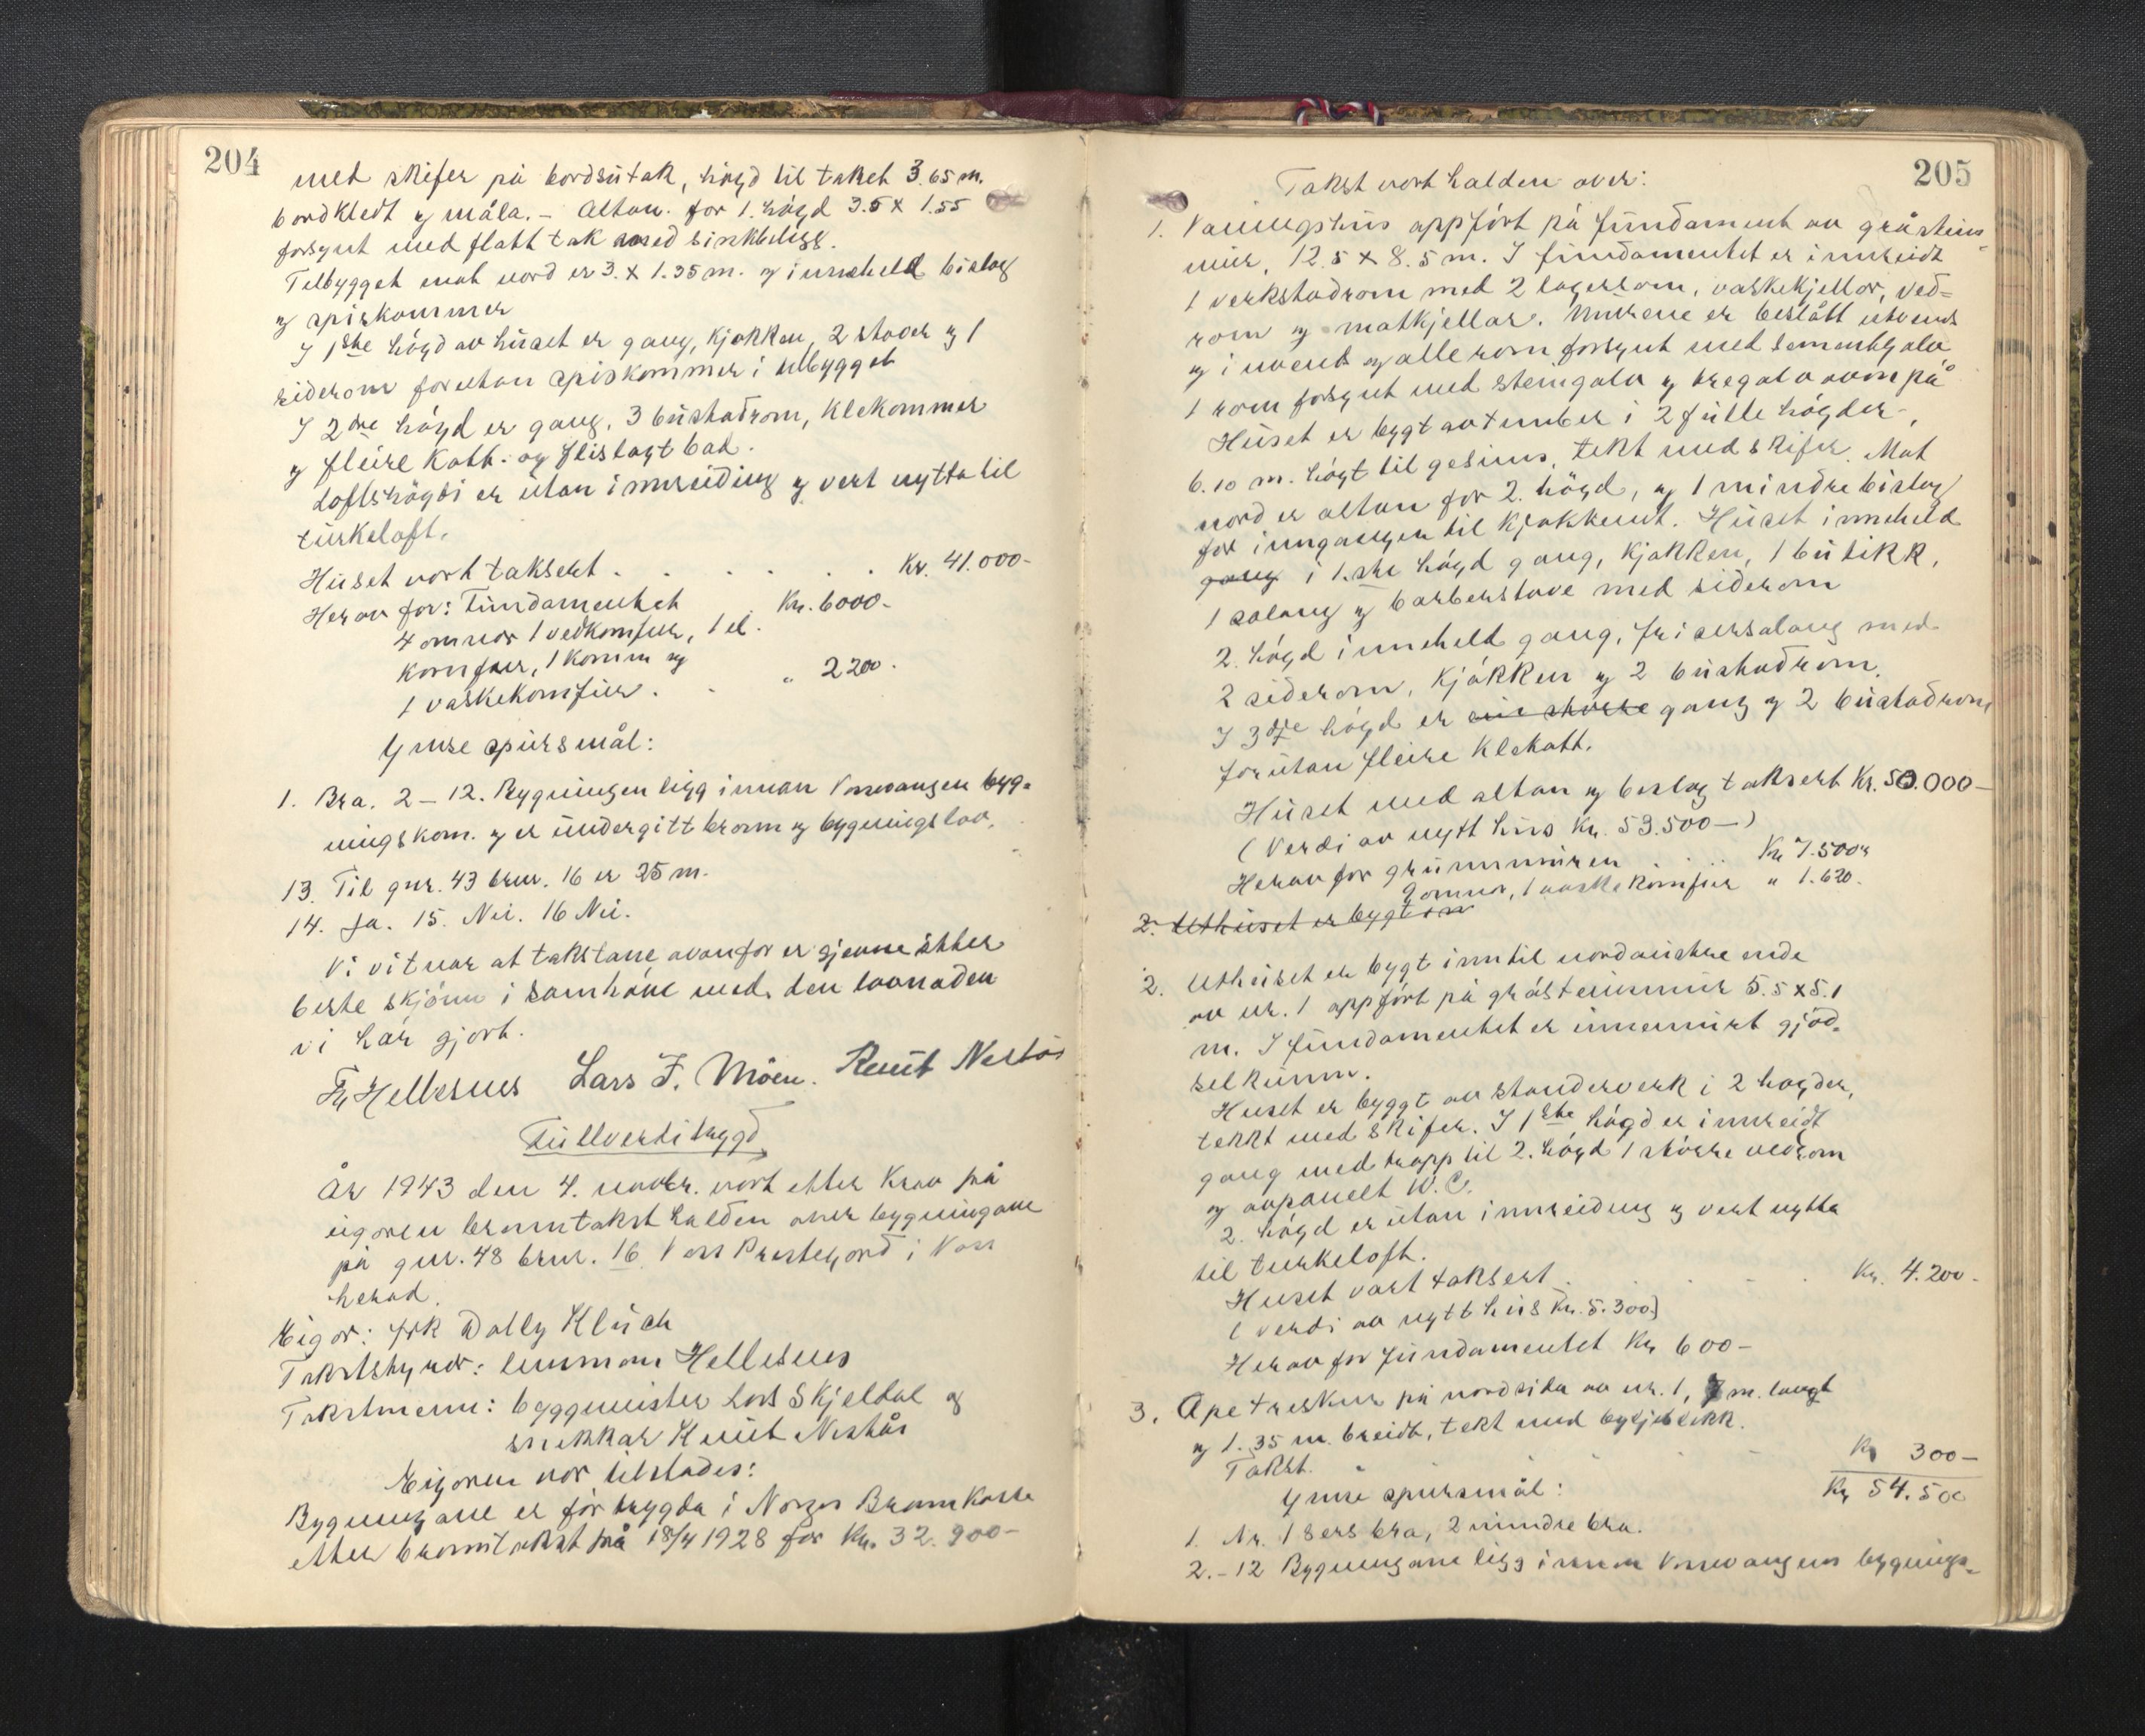 204
med skifer på bordsutak, högd til taket 3.65 m.
bordkledt og måla. – Altan. for 1. högd 3.5 x 1.55
forsynt med flatt tak med sinkbelegg.
Tilbygget mot nord er 3. x 1.35 m. og inneheld bislag
og spiskammer
I 1ste högd av huset er gang, kjökken, 2 stover og 1
siderom forutan spiskammer i tilbygget
I 2dre högd er gang, 3 bustadrom, klekammer
og fleire kott. og flislagt bad.
Loftshögdi er utan innreiding og vert nytta til
turkeloft.
Huset vart taksert . . . . . . Kr. 41.000-
Herav for: Fundamentet Kr. 6000-
4 omnar 1 vedkomfur, 1 el.
komfur, 1 kamin og
1 vaskekomfur . . " 2200.
Ymse spursmål:
1. Bra. 2 – 12. Bygningen ligg innan Vossevangen byg-
ningskom. og er undergitt brann og bygningslov.
13. Til gnr. 43 brnr. 16 er 25 m.
14. Ja. 15. Nei. 16 Nei.
Vi vitnar at takstane ovanfor er gjevne etter
beste skjönn i samhöve med den lovnaden
vi har gjort.
Fr Hellesnes Lars F. Möen. Knut Nestås
Fullverditrygd
År 1943 den 4. novbr. vart etter krav på
eigaren branntakst halden over bygningane
på gnr. 48 brnr. 16 Voss Prestegard i Voss
herad.
Eigar: frk Dolly Kluch
Takststyrar: lensmann Hellesnes
Takstmenn: byggmeister Lars Skjeldal og
snekkar Knut Nestås
Eigaren var tilstades:
Bygningane er för trygda i Norges Brannkasse
etter branntakst på 18/4 1928 for Kr. 32.900-
205
Takst vart halden over:
1. Våningshus oppfört på fundament av gråsteins-
mur, 12.5 x 8.5 m. I fundamentet er innreidt
1 verkstadrom med 2 lagerrom, vaskekjellar, ved=
rom og matkjellar. Murene er beslått utvendt
og innvendt og alle rom forsynt med sementgolv
1 rom forsynt med steingolv og tregolv ovenpå
Huset er bygt av tømber i 2 fulle högder,
6.10 m. högt til gesims, tekt med skifer. Mot
nord er altan for 2. högd, og 1 mindre bislag
for inngangen til kjökkenet. Huset inneheld
gang i 1.ste högd gang, kjökken, 1 butikk,
1 salong og barberstove med siderom
2. högd inneheld gang, frisersalong med
2 siderom, kjökken og 2 bustadrom.
I 3dje högd er ein större gang og 2 bustadrom
forutan fleire klekott.
Huset med altan og bislag taksert Kr. 50.000-
(Verdi av nytt hus Kr. 53.500-)
Herav for grunnmuren . . .. Kr 7.500-
9 omnar, 1 vaskekomfur " 1.620.
2. Uthuset er bygt inn
2. Uthuset er bygt inntil nordaustre ende
av nr. 1 oppfört på gråsteinsmur 5.5 x 5.1
m. I fundamentet er innemurt gjöd-
selkum.
Huset er byggt av standerverk i 2 högder,
tekkt med skifer. I 1ste högd er innreidt
gang med trapp til 2. högd 1 större vedrom
og avpanelt W.C.
2. högd er utan innreiding og vert nytta
til turkeloft.
Huset vart taksert . . . . . Kr. 4.200-
(verdi av nytt hus Kr. 5.300)
Herav for fundamentet Kr 600-
3. Ope treskur på nordsida av nr. 1, 7 m. langt
og 1.35 m. breidt, tekt med bylgjeblekk.
Takst. - - - - - Kr 300-
Kr 54.500
Ymse spursmål:
1. Nr. 1 sers bra, 2 mindre bra.
2.–12 Bygningane ligg innan Vossevangens bygnings-